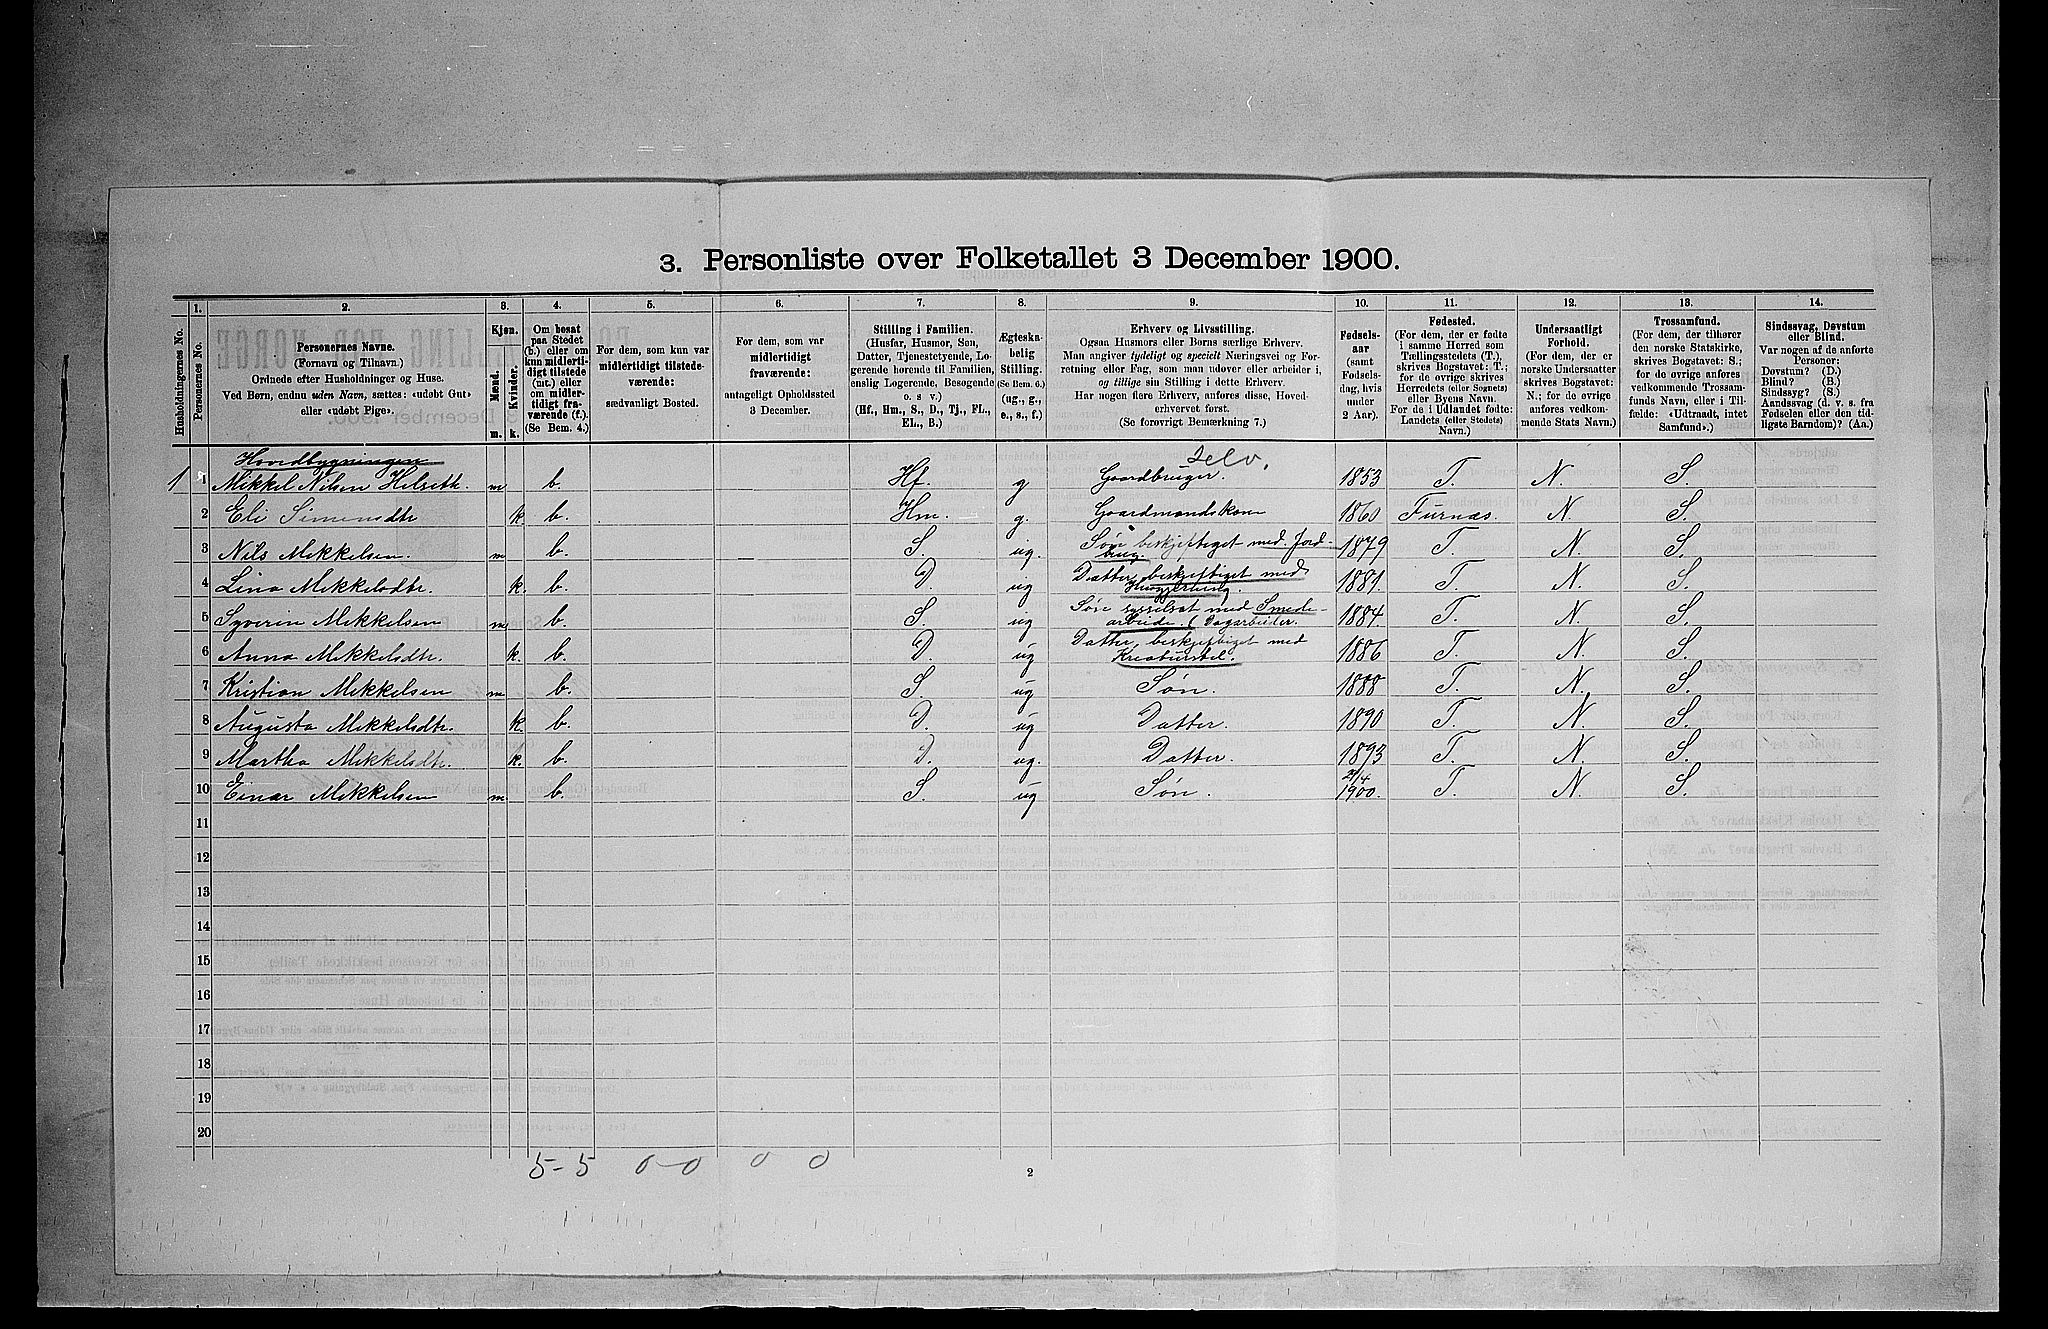 3. Personliste over Folketallet 3 December 1900.
1. 2. 3. 4. 5. 6. 7. 8. 9. 10. 11. 12. 13. 14.
Husholdningernes No.
Personernes No.
Personernes Navne.
(Fornavn og Tilnavn.)
Ordnede efter Husholdninger og Huse.
Ved Børn, endnu uden Navn, sættes: «udøbt Gut»
eller «udøbt Pige».
Kjøn.
Mænd.
Kvinder.
m. k.
Om bosat
paa Stedet
(b.) eller om
kun midlerti-
digt tilstede
(mt.) eller
om midler-
tidigt fra-
værende (f.).
(Se Bem. 4.)
For dem, som kun var
midlertidigt tilstede-
værende:
sædvanligt Bosted.
For dem, som var
midlertidigt
fraværende:
antageligt Opholdssted
3 December.
Stilling i Familien.
(Husfar, Husmor, Søn,
Datter, Tjenestetyende, Lo-
gerende hørende til Familien,
enslig Logerende, Besøgende
o. s. v.)
(Hf., Hm., S., D., Tj., FL.,
EL., B.)
Ægteska-
belig
Stilling.
(Se Bem. 6.)
(ug., g.,
e., s., f.)
Erhverv og Livsstilling.
Ogsaa Husmors eller Børns særlige Erhverv.
Man angiver tydeligt og specielt Næringsvei og For-
retning eller Fag, som man udøver eller arbeider i,
og tillige sin Stilling i dette Erhverv.
Har nogen flere Erhverv, anføres disse, Hoved-
erhvervet først.
(Se forøvrigt Bemærkning 7.)
Fødsels-
aar
(samt
Fødsels-
dag, hvis
under
2 Aar).
Fødested.
(For dem, der er fødte
i samme Herred som
Tællingsstedets (T.),
skrives Bogstavet: T.;
for de øvrige skrives
Herredets (eller Sognets)
eller Byens Navn.
For de i Udlandet fødte:
Landets (eller Stedets)
Navn.)
Undersaatligt
Forhold.
(For dem, der er
norske Undersaatter
skrives Bogstavet:
N.; for de øvrige
anføres vedkom-
mende Stats Navn.)
Trossamfund.
(For dem, der tilhører
den norske Statskirke,
skrives Bogstavet: S.;
for de øvrige anføres
vedkommende Trossam-
funds Navn, eller i Til-
fælde: «Udtraadt, intet
Samfund».)
Sindssvag, Døvstum
eller Blind.
Var nogen af de anførte
Personer:
Døvstum? (D.)
Blind? (B.)
Sindssyg? (S.)
Aandssvag (d. v. s. fra
Fødselen eller den tid-
ligste Barndom)? (Aa.)
Hovedbygningen
selv.
1 1 Mikkel Nilsen Helseth. m b. Hf. g Gaardbruger. 1853 T. N. S.
2 Eli Simensdtr k. b. Hm. g. Gaardmandskone 1860 Furnæs. N. S.
3 Nils Mikkelsen. m b. S. ug. Søn beskjeftiget med Jord-
brug. 1879 T. N. S.
4 Lina Mikkelsdtr. k. b. D. ug Datter, beskjeftiget med
Husgjerning. 1881. T. N. S.
5 Syverin Mikkelsen m b. S. ug Søn sysselsat med Smede-
arbeide. (Dagarbeider. 1884. T. N. S.
6 Anna Mikkelsdtr. k. b. D. ug Datter, beskjeftiget med
Kreaturstel. 1886 T. N. S.
7 Kristian Mikkelsen m b. S. ug Søn. 1888 T. N. S.
8 Augusta Mikkelsdtr. k. b. D. ug Datter. 1890 T. N. S.
9 Martha Mikkelsdtr. k. b. D. ug. Datter. 1893 T. N. S.
10 Einar Mikkelsen m. b. S. ug Søn. 1900. T. N. S.
11
12
13
14
15
16
17
18
19
20
5-5 0-0 0 0
2